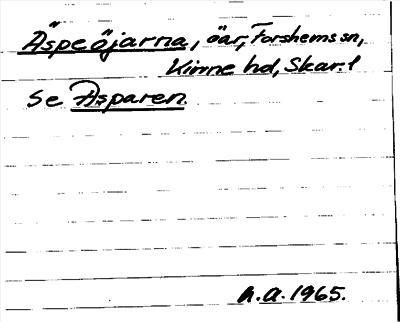 Äspeöjarna, öar, Forshems sn,
Kinne hd, Skar. l
Se Asparen.
h.a. 1965.